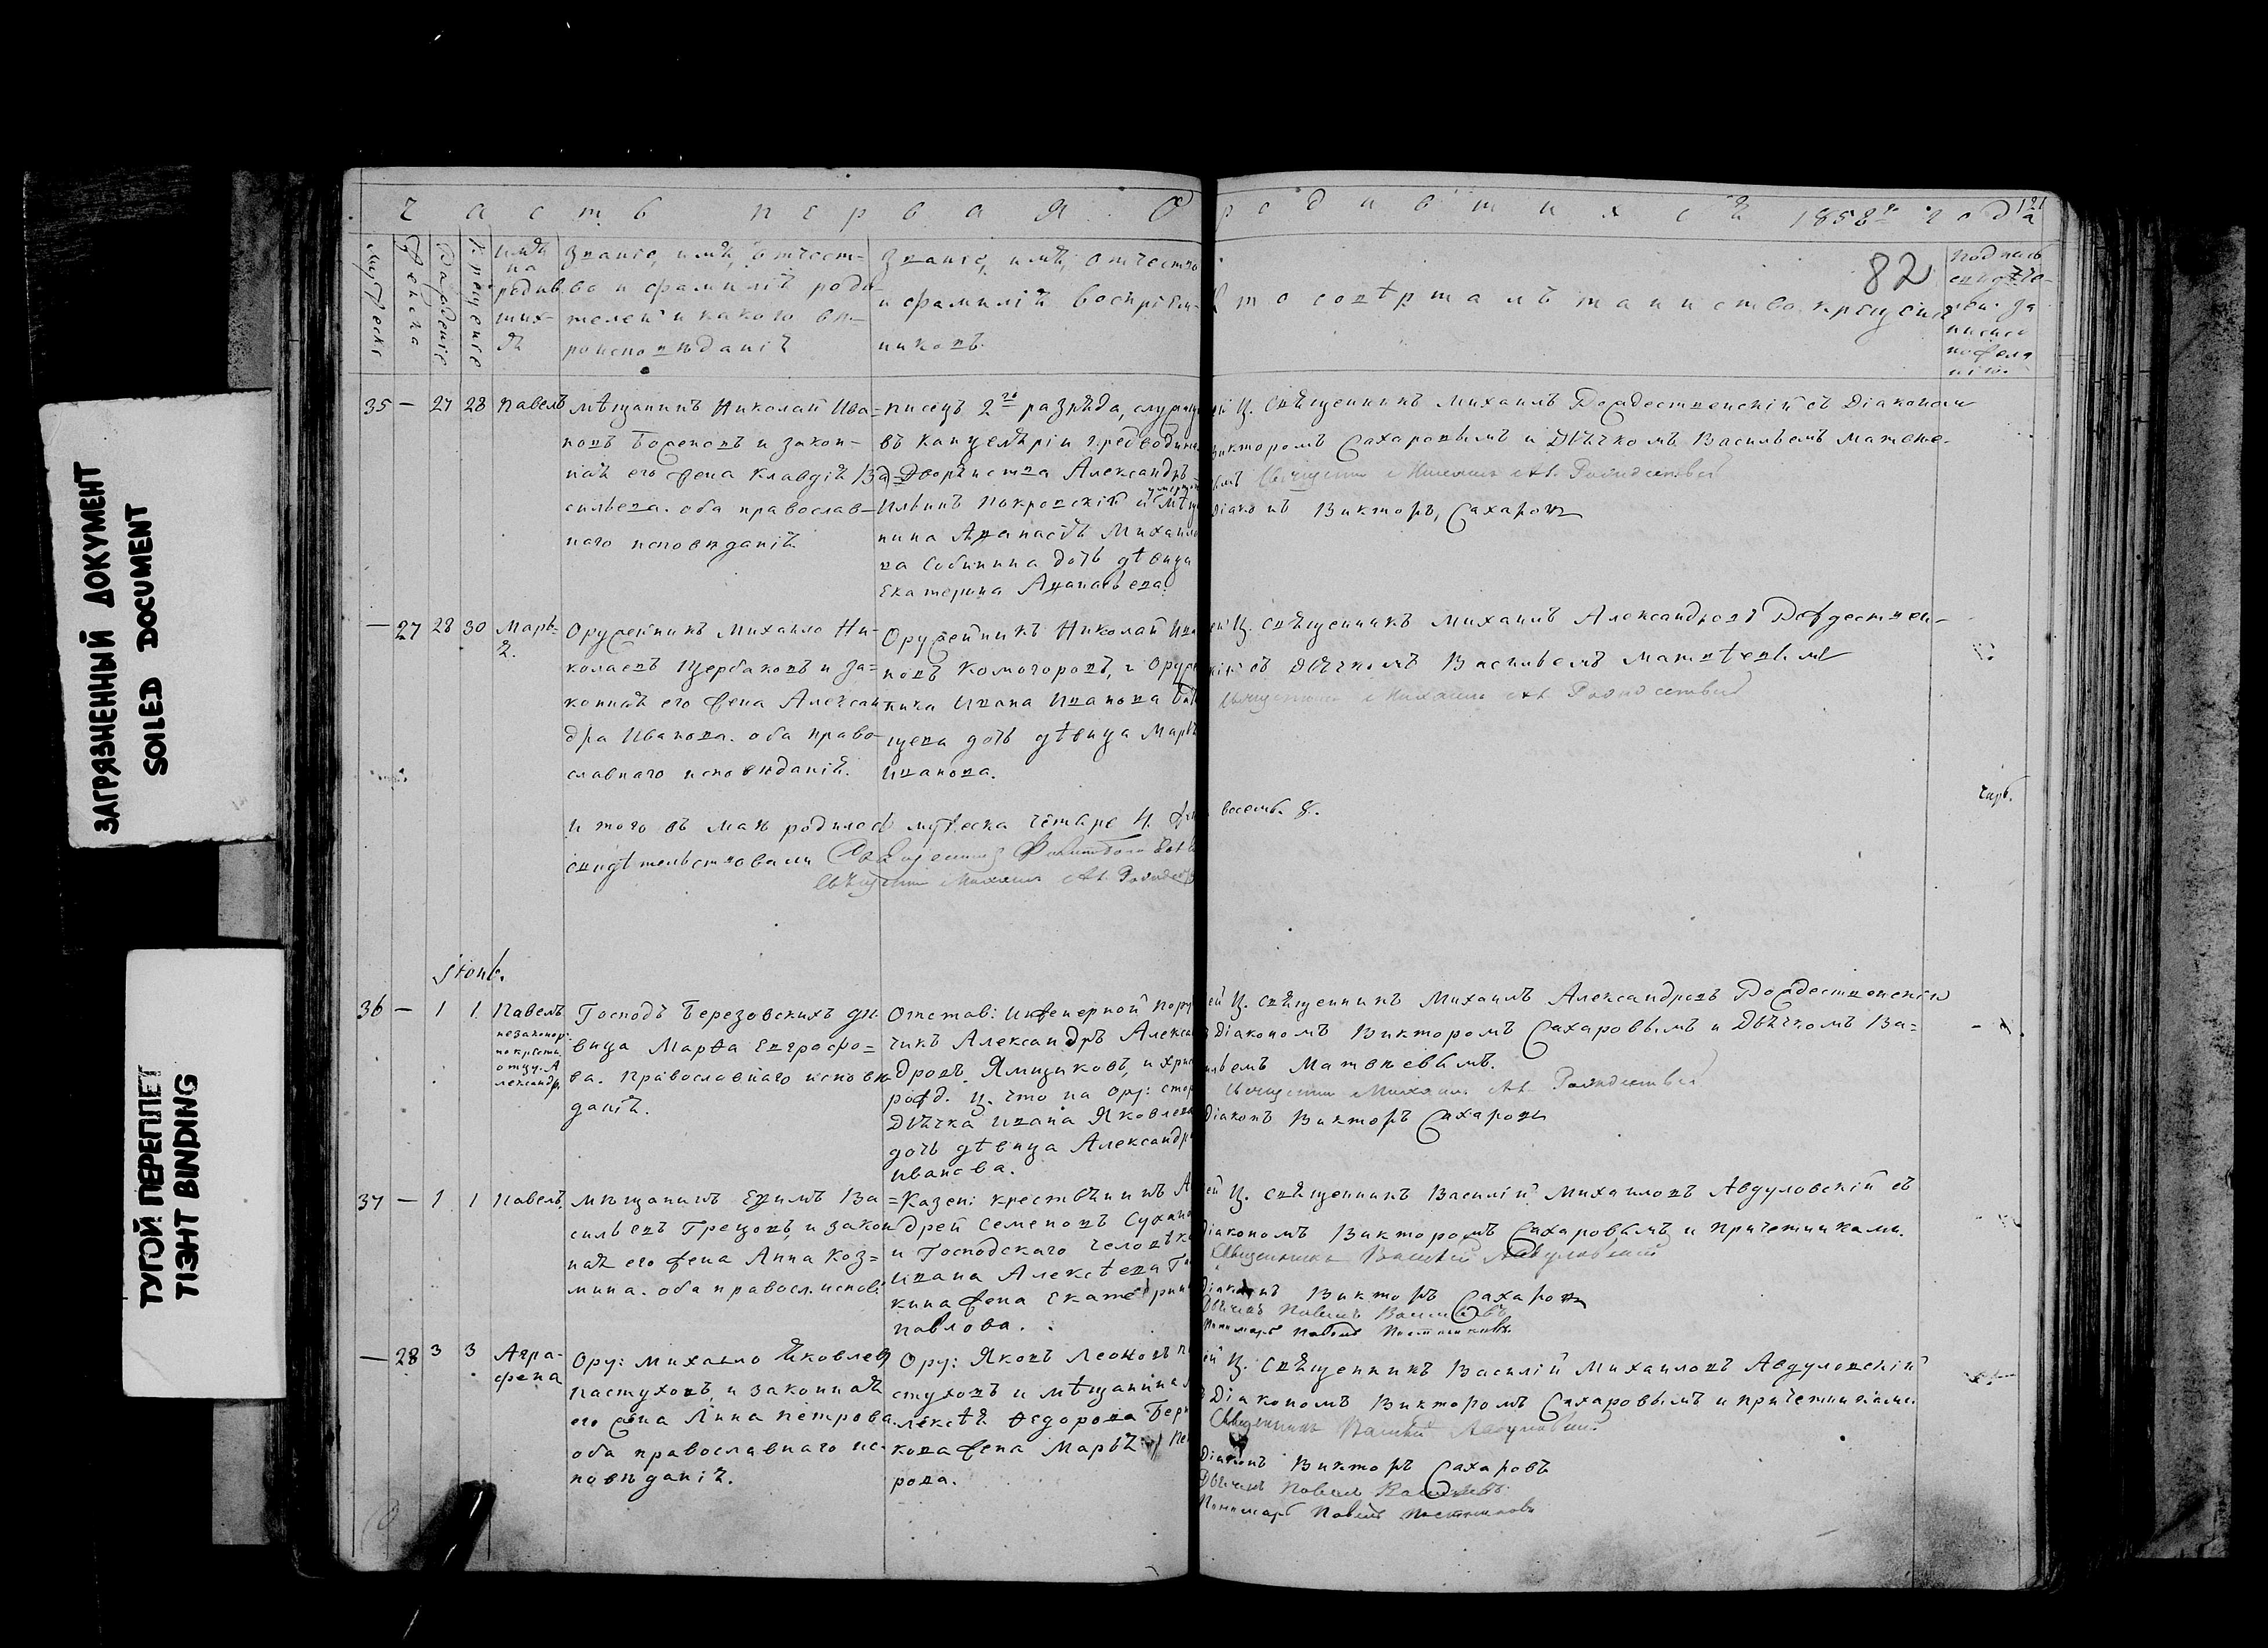 ЗАГРЯЗНЕННЫЙ ДОКУМЕНТ
SOILED DOCUMENT
ТУГОЙ ПЕРЕПЛЕТ
TIGHT BINDING
часть первая О родившихся 1858го года
121
82
Мужеска
Женска
Рожденiе
Крещенiе
Имя
на
родив
ших
ся
Званiе, имя, отчест-
во и фамилiя роди-
телей и какого вѣ-
роисповѣданiя
Званiе, имя, отчество
и фамилiя воспрiем-
никовъ.
Кто совѣршалъ таинство крещенiя
Подпись
свидѣте-
лей за
писи
по жела
нiю.
35 — 27 28 Павелъ
мѣщанинъ Николай Ива=
новъ Борековъ и закон-
ная его жена Клавдiя Ва
сильева. оба православ-
наго исповѣданiя
писецъ 2го разряда, служащ
въ канцелярiи предводи
Дворянства Александръ
Ильинъ Покровскiй и умерш мѣщ
нина Афанасiя Михайло
ва Собинина дочь дѣвица
Екатерина Афанасьева
Ц. Священникъ Михаилъ Рождественскiй съ Дiакономъ
Викторомъ Сахаровымъ и Дьячкомъ Васильемъ Матвѣе-
вымъ Священникъ Михаилъ Ал. Рождественскiй
Дiаконъ Викторъ Сахаровъ
— 27 28 30 Марь=
я.
Оружейникъ Михайло Ни-
колаевъ Щербаковъ и за=
конная его жена Алексан
дра Иванова. оба право-
славнаго исповѣданiя.
Оружейникъ Николай Ива
новъ Комогоровъ, и Оруже
ника Ивана Иванова
цева дочь дѣвица Марья
Иванова.
Ц. Священникъ Михаилъ Александровъ Рождествен-
скiй съ Дьячкомъ Васильемъ Матвѣевымъ
Священникъ Михаилъ Ал. Рождественскiй
Итого въ маѣ родилось мужеска четыре 4. жен восемь 8.
свидѣтельствовали Священникъ
Священникъ Михаилъ Ал. Рождеств
Iюнь.
36 — 1 1 Павелъ
незаконор:
по крестн.
отцу. А
лександр.
Господъ Березовскихъ дѣ-
вица Марѳа Евграфо=
ва. Православнаго исповѣ
данiя.
Отстав: Инженерной Пору
чикъ Александръ Алекса
дровъ Ямщиковъ, и Хрис
рожд. ц. что на Ору: стор
Дьячка Ивана Яковлева
дочь дѣвица Александра
Иванова.
Ц. Священникъ Михаилъ Александровъ Рождественскiй
Дiакономъ Викторомъ Сахаровымъ и Дьячкомъ Ва=
сильемъ Матвѣевымъ.
Священникъ Михаилъ Ал. Рождественскiй
Дiаконъ Викторъ Сахаровъ
37 — 1 1 Павелъ.
мѣщанинъ Ефимъ Ва
сильевъ Грецовъ, и закон
ная его жена Анна Коз=
мина. оба правосл. испов:
=Казен: крестьянинъ Ан
дрей Семеновъ Сухано
и Господскаго человѣка
Ивана Алексѣева
кина жена Екатерина
Павлова.
Ц. Священникъ Василiй Михайловъ Авдуловскiй съ
Дiакономъ Викторомъ Сахаровымъ и причетниками.
Священникъ Василiй Авдуловскiй
Дiаконъ Викторъ Сахаровъ
Дьячекъ Павелъ Васильевъ
Пономарь Павелъ Постниковъ
— 28 3 3 Агра-
фена
Ору: Михайло Яковлев
Пастуховъ и законная
его жена Анна Петрова
оба православнаго ис-
повѣданiя.
Ору: Яковъ Леоновъ па
стуховъ и мѣщанина А
лексѣя Ѳедорова
кова жена Марья Пет
рова.
Ц. Священникъ Василiй Михайловъ Авдуловскiй
Дiакономъ Викторомъ Сахаровымъ и причетниками.
Священникъ Василiй Авдуловскiй
Дiаконъ Викторъ Сахаровъ
Дьячекъ Павелъ Васильевъ
Пономарь Павелъ Постниковъ